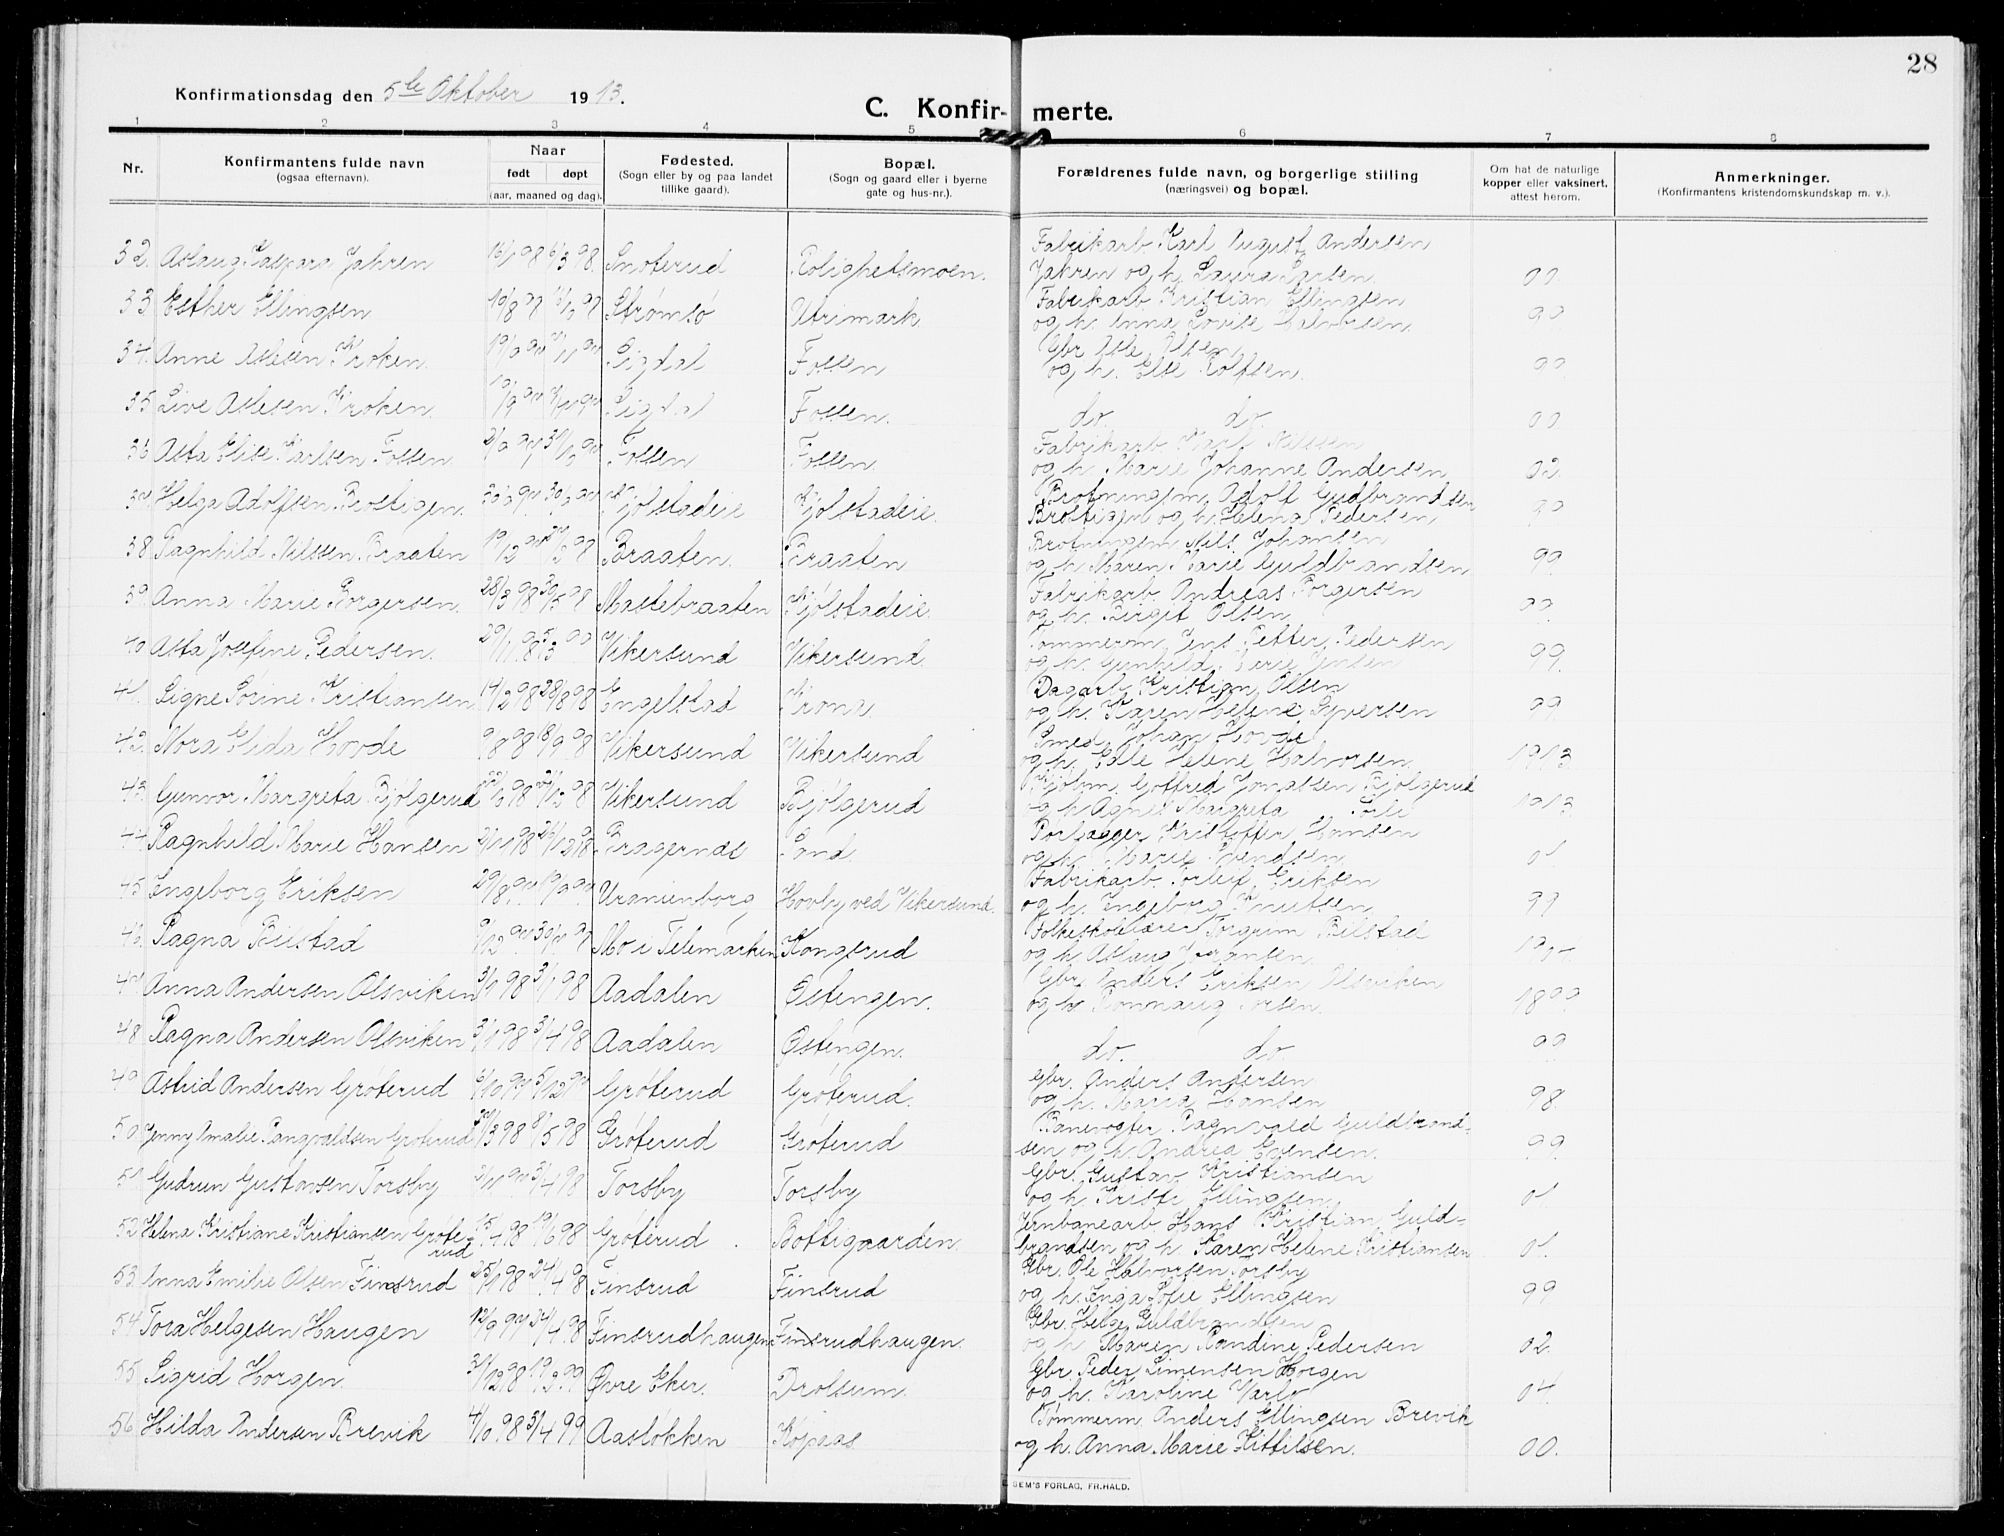 28
Konfirmationsdag den 5te Oktober 1913.
C. Konfir- merte.
1 2 3 4 5 6 7 8
Nr.
Konfirmantens fulde navn
(ogsaa efternavn).
Naar
født døpt
(aar, maaned og dag).
Fødested.
(Sogn eller by og paa landet
tillike gaard).
Bopæl.
(Sogn og gaard eller i byerne
gate og hus-nr.).
Forældrenes fulde navn, og borgerlige stilling
(næringsvei) og bopæl.
Om hat de naturlige
kopper eller vaksinert.
attest herom.
Anmerkninger.
(Konfirmantens kristendomskundskap m. v.).
32. Aslaug Kaspara Jahren 16/1 98 6/3 98. Snoterud Rolighetsmoen. Fabrikarb. Karl August Andersen
Jahren og h. Laura Larsen. 00.
33 Esther Ellingsen Strømsø Utrimark Fabrikarb Kristian Ellingsen
og h. Anna Lovise Halvorsen. 99
34. Anne Aslesen Kroken. Sigdal Fossen Gbr Asle Olsen
og h. Else Rolfsen. 99
35 Live Aslesen Kroken. Sigdal Fossen. do. do. 00
36 Asta Elise Karlsen Fossen Fossen Fossen Fabrikarb. Karl Nilssen
og h. Marie Johanne Andersen 02.
37 Helga Adolfsen Brostigen. Kjølstadeie Kjølstadeie. Brotningsm. Adolf Gudbrandsen
Brostigen og h. Helena Pedersen, 99
38 Ragnhild Nilssen Braaten Braaten. Braaten Brotningsm Nils Johansen
og h Maren Marie Guldbrandsen 99.
39. Anna Marie Borgersen. 28/3 98 30/5 98 Mastebraaten Kjølstadeie Fabrikarb. Andreas Borgersen
og h. Birgit Olsen. 99.
40 Asta Josefine Pedersen. 29/11.98 5/3 99 Vikersund Vikersund. Tømmerm. Jens Petter Pedersen
og h. Gunhild Jensen 99.
41. Signe Sørine Kristiansen 14/2 98 28/8 98 Engelstad Krona Dagarb. Kristian Olsen
og h. Karen Helene Syversen 99.
42. Nora Elida Hovde 9/8 98 8/9 98 Vikersund Vikersund Smed. Johan Hovde
og h. Elle Helene Halvorsen. 1913.
43. Gunvor Margreta Bjølgerud Vikersund Bjølgerud Gotfred Jonassen Bjølgerud
og h Agnes Margreta 1913
44 Ragnhild Marie Hansen 2/11 98 26/12 98 Bragernæs Sand. Kristoffer Hansen
og h. Marie Svendsen. 01
45 Ingeborg Eriksen Uranienborg Hovby ved Vikersund. Fabrikarb. Torleif Eriksen
og h. Ingeborg Knutsen 99
46. Ragna Bilstad Mo i Telemarken Kongsrud Folkeskolelærer Torgrim Bilstad
og h Aslaug
47 Anna Andersen Olsviken 3/1 98 3/4 98 Aadalen Østengen. Gbr. Anders Eriksen Olsviken
og h 1899
48 Ragna Andersen Olsviken 3/1 98 3/4 98 Aadalen Østengen. do. do. 99
49 Astrid Andersen Grøterud 6/10 97 5/12 97 Grøterud Grøterud. Gbr. Anders Andersen
og h. Maria Hansen 98.
50 Jenny Amalie Rangvaldsen Grøterud 20/3 98 8/5 98 Grøterud Grøterud Banevogter Ragnvald Guldbrand-
sen og h. Andrea Evensen. 99.
51 Gudrun Gustavsen Torsby 2/11 97 3/4 98 Torsby Torsby Gbr. Gustav Kristiansen
og h. Kristi Ellingsen 01
52 Helena Kristiane Kristiansen Grøte-
rud 15/4 98 19/6 98 Grøterud Bottigaarden. Jernbanearb. Hans Kristian Guld-
brandsen og h. Karen Helene Kristiansen 01.
53. Anna Emilie Olsen Finsrud 25/1 98 24/4 98 Finsrud Finsrud Gbr. Ole Halvorsen Torsby
og h. Inga Sofie Ellingsen 99
54 Tora Helgesen Haugen 12/9 97 24/4 98 Finsrudhaugen Finsrudhaugen. Gbr. Helge Guldbrandsen
og h Maren Randine Pedersen 02.
55 Sigrid Horgen. 31/12 98 19/3 99 Øvre Eker. Drolsum. Gbr Peder Simensen Horgen
og h. Karoline Varlo 04.
56 Hilda Andersen Brevik 4/10 98 3/4 99 Aasløkken Køpaas. Tømmerm. Anders Ellingsen Brevik
og h. Anna Marie Kittilsen. 00.
SEM'S FORLAG, FR.HALD.